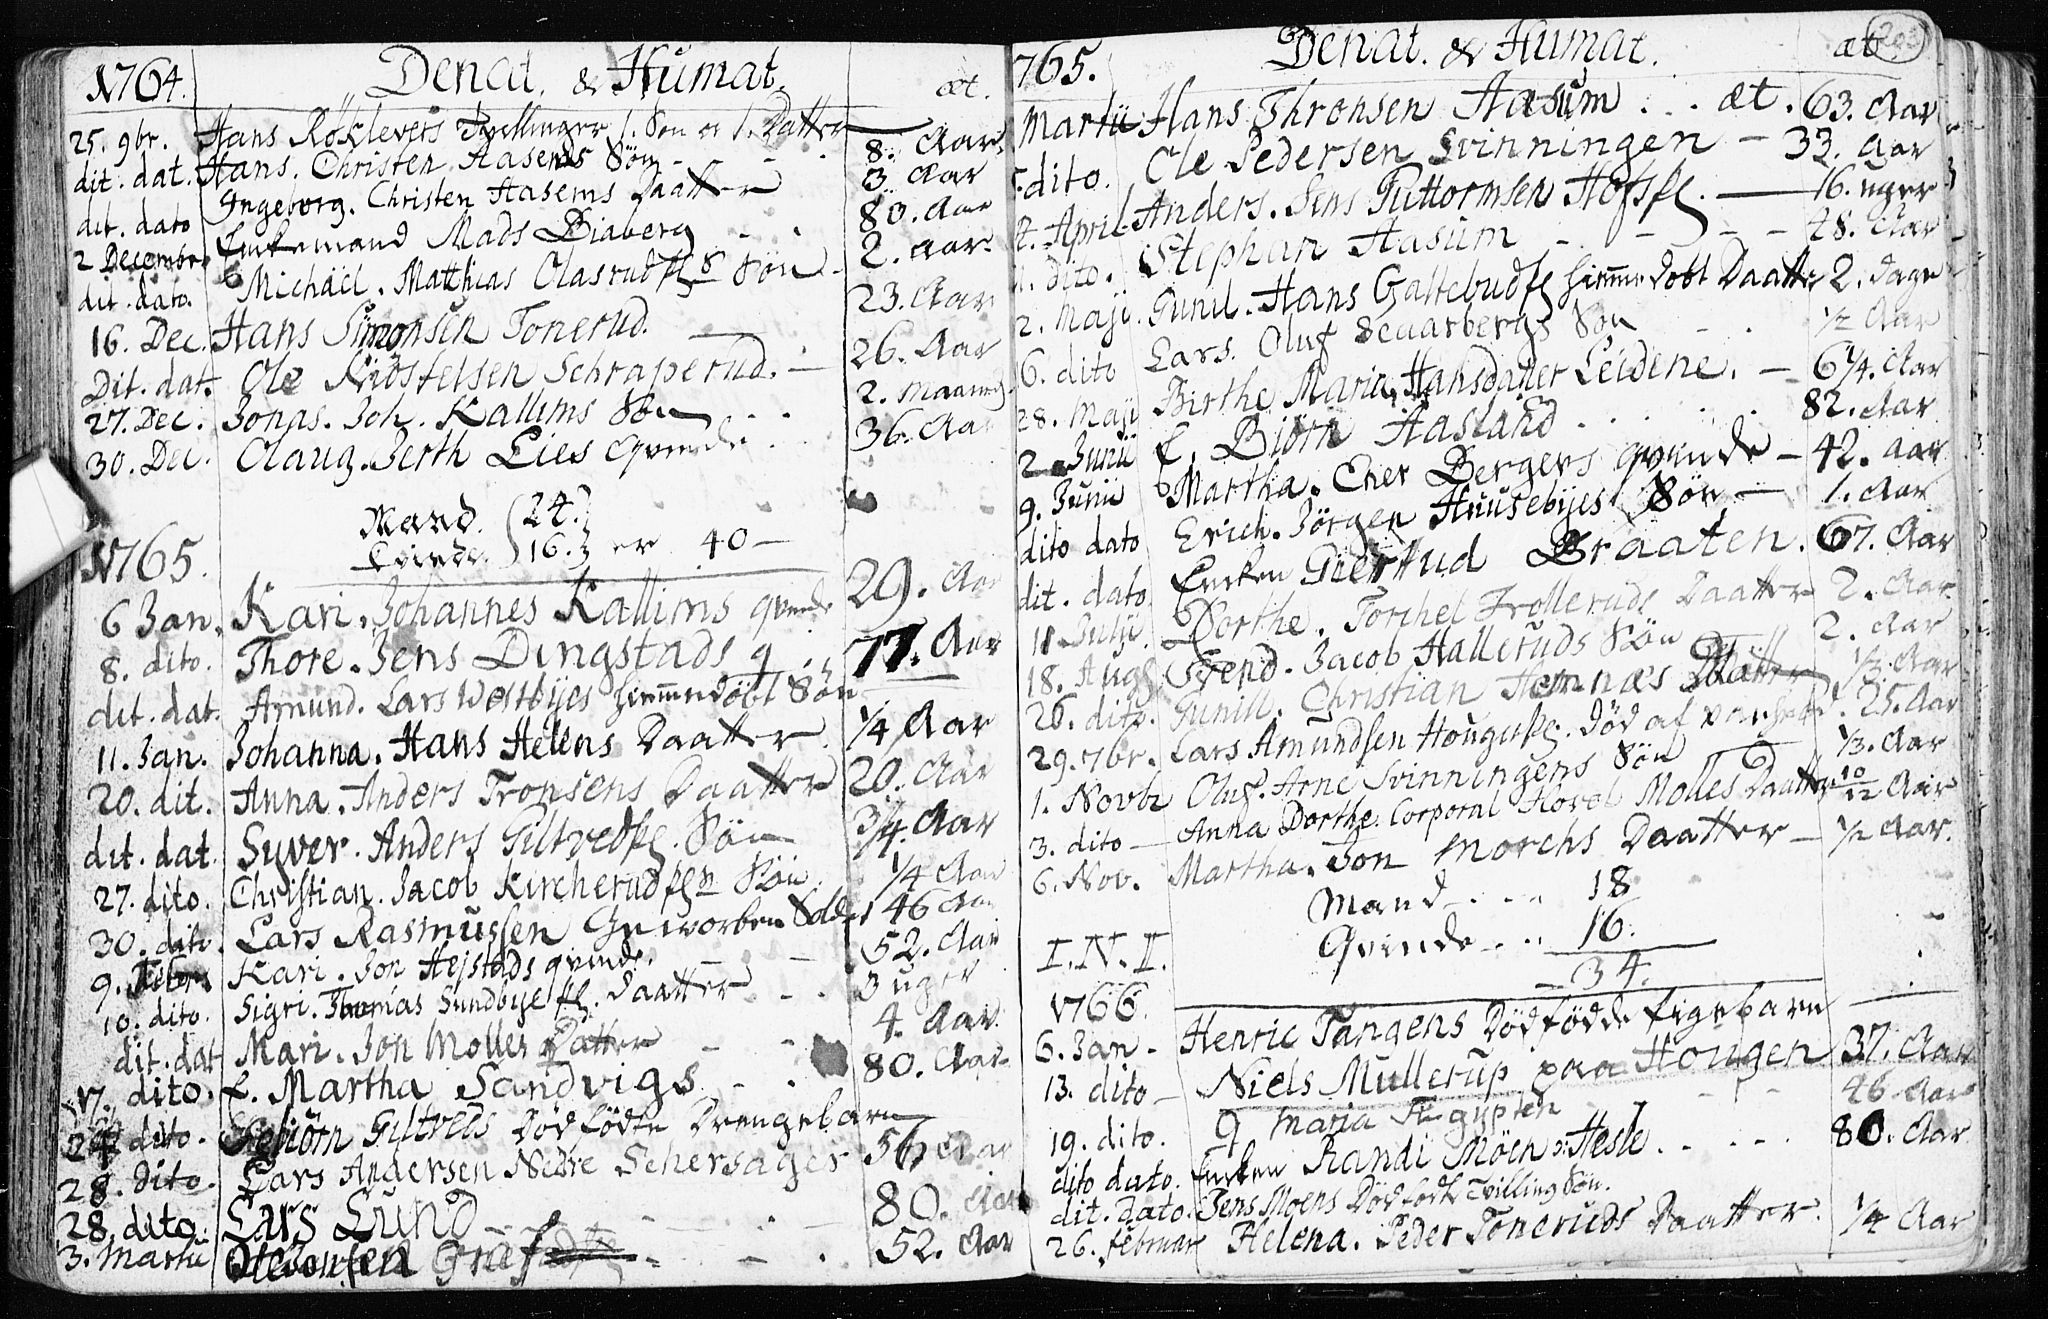 1764. Denat. & Humat. æt.
25. 9br. Hans Røklevers Tvellinger 1. Søn og 1. Datter
dit. dat. Hans. Christen Hasems Søn - - - 8. Aar
dit. dato Ingeborg. Christen Hasems Daatter 3. Aar
2 Decembr. Enkemand Mads Biaberg - - - 80. Aar
dit. dato. Michael. Matthias Olasrud Søn - 2. Aar
16. Dec. Hans Simonsen Tonerud. 23. Aar
Dit. dat. Ole Kiøstelsen Schraperud. - 26. Aar
27. Dec. Jonas. Joh. Kallims Søn - - - 2. Maaned
30. Dec. Olaug. Berth Lies Qvinde - - 36. Aar
Mand. 24.
Qvinde. 16. er 40 -
1765.
6 Jan. Kari. Johannes Kallims qvinde 29. Aar
8. dito. Thore. Jens Dingstads q - - 77. Aar
dit. dat. Amund. Lars Westbyes hiemmedøbt Søn
11. Jan. Johanna. Hans Helens Daatter 1/4 Aar
20. dit. Anna. Anders Tronsens Daatter 20. Aar
dit. dat. Syver. Anders Giltvedße. Søn 3/4. Aar
27. dito. Christian. Jacob Kircherud Søn 1/4 Aar
30. dito. Lars Rasmussen Gevorben Soldat 46 Aar
9. Febr. Kari. Jon Hejstads qvinde. - - 52. Aar
10. dito. Sigri. Thomas Sundbye Daatter - - 3 uger
dit. dat Mari. Jon Molles Datter - - 4. Aar
17. dito. E. Martha Sandvigs - - 80. Aar
24 dito. Giltveds Dødfødte Drengebarn
28. dito. Lars Andersen Nedre Schersager 56 Aar
28. dito. Lars Lund - - - 80. Aar
3. Martii Ole - - 52. Aar
1765. Denat. & Humat. æt 203
Martii Hans Thronsen Aasum . . . æt. 63. Aar
dito. Ole Pedersen Svinningen - 33. Aar
April Anders. Jens Guttormsen Hofs - 16. uger
dito. Stephan Aasum - - - - 48. Aar
2. Maji. Gunil. Hans Galtebudße hiemmedobt Daatter 2. Dage
6. dito Lars. Oluf Scaarbergs Søn - - 1/2 Aar
28. Maji Birthe Maria Hansdatter Leidene. - 6 1/4. Aar
2 Junii E. Biørn Aasland . . . . 82. Aar
9. Junii Martha. Ener Bergers qvinde - 42. Aar
dito dato Erich. Jørgen Huusebyes Søn - 1. Aar
dit. dato. Encken Giertrud Braaten. 67. Aar
11 Julii Dorthe. Torchel Trolleruds Daatter 2. Aar
18. Aug Svend. Jacob Halleruds Søn 2. Aar
26. dito. Gunill. Christian Hemnæs Datter 1/2. Aar
29. 7br. Lars Amundsen Hougerße. død af 25. Aar
1. Novbr Oluf. Arne Svinningens Søn 1/3. Aar
3. dito - Anna Dorthe. Corporal Molles Daatter 10/12 Aar
6. Nov. Martha. Jon Morchs Daatter - 1/2 Aar.
Mand - . . . 18
Qvinde - . . 16.
34.
I. N. I.
1766.
6. Jan - Henric Tangens Dødfødde Pigebarn
13. dito - Niels Mullerup paa Hougen 37. Aar
19. dito. q Maria Ægypten - - - 46 Aar
dito dato. Encken Randi Møen Hesle . - - . 80. Aar
dit. dato. Jens Moens Dødfødte Tvilling Søn.
26. februar Helena. Peder Toneruds Daatter. 1/4 Aar